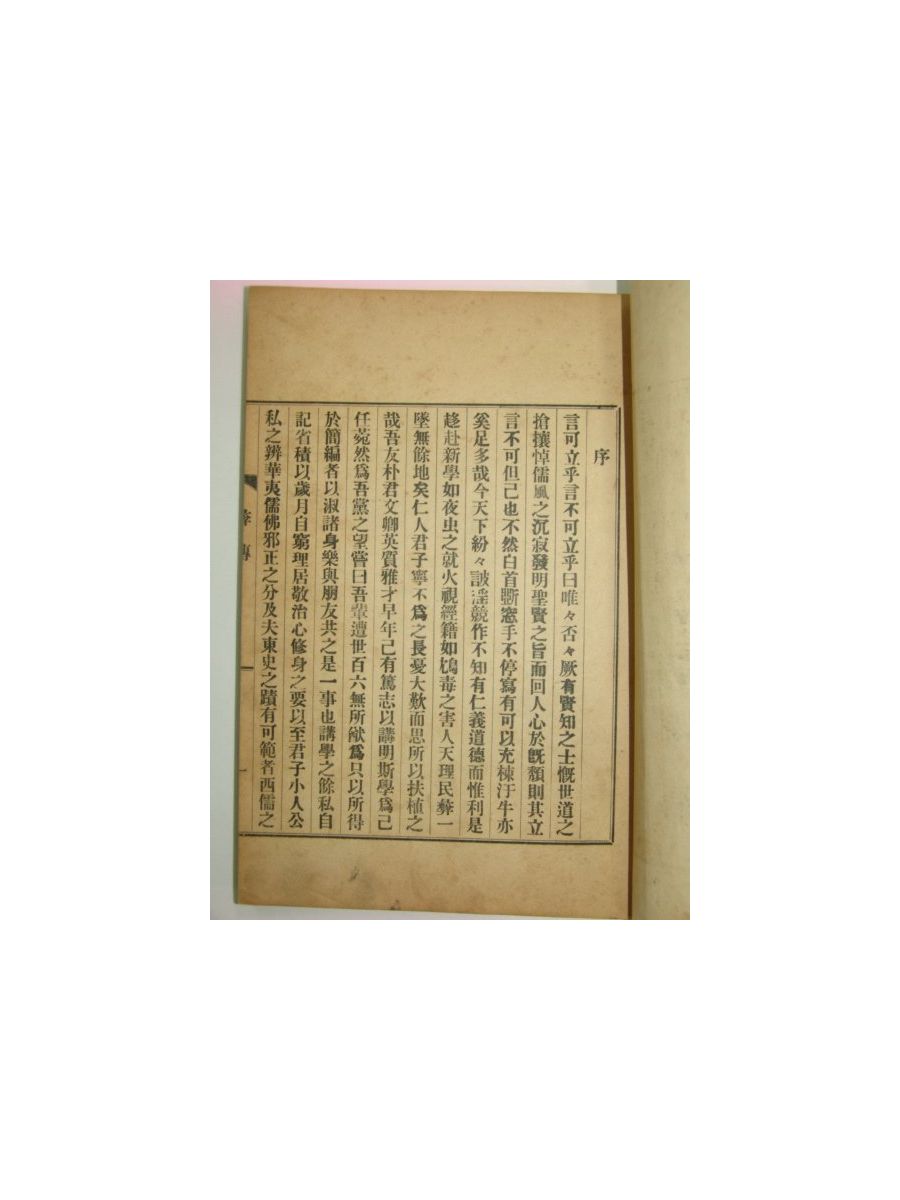 序
言可立乎言不可立乎曰唯々否々厥有賢知之士慨世道之
搶攘悼儒風之沉寂發明聖賢之旨而回人心於旣頹則其立
言不可但已也不然白首斷窓手不停寫有可以充棟汙牛亦
奚足多哉今天下紛々詖淫競作不知有仁義道德而惟利是
趍赴新學如夜虫之就火視經籍如鴆毒之害人天理民彝一
墜無餘地矣仁人君子寧不爲之長憂大歎而思所以扶植之
哉吾友朴君文卿英質雅才早年己有篤志以講明斯學爲己
任菀然爲吾黨之望嘗曰吾輩遭世百六無所猷爲只以所得
於簡編者以淑諸身樂與朋友共之是一事也講學之餘私自
記省積以歲月自窮理居敬治心修身之要以至君子小人公
私之辨華夷儒佛邪正之分及夫東史之蹟有可範者西儒之